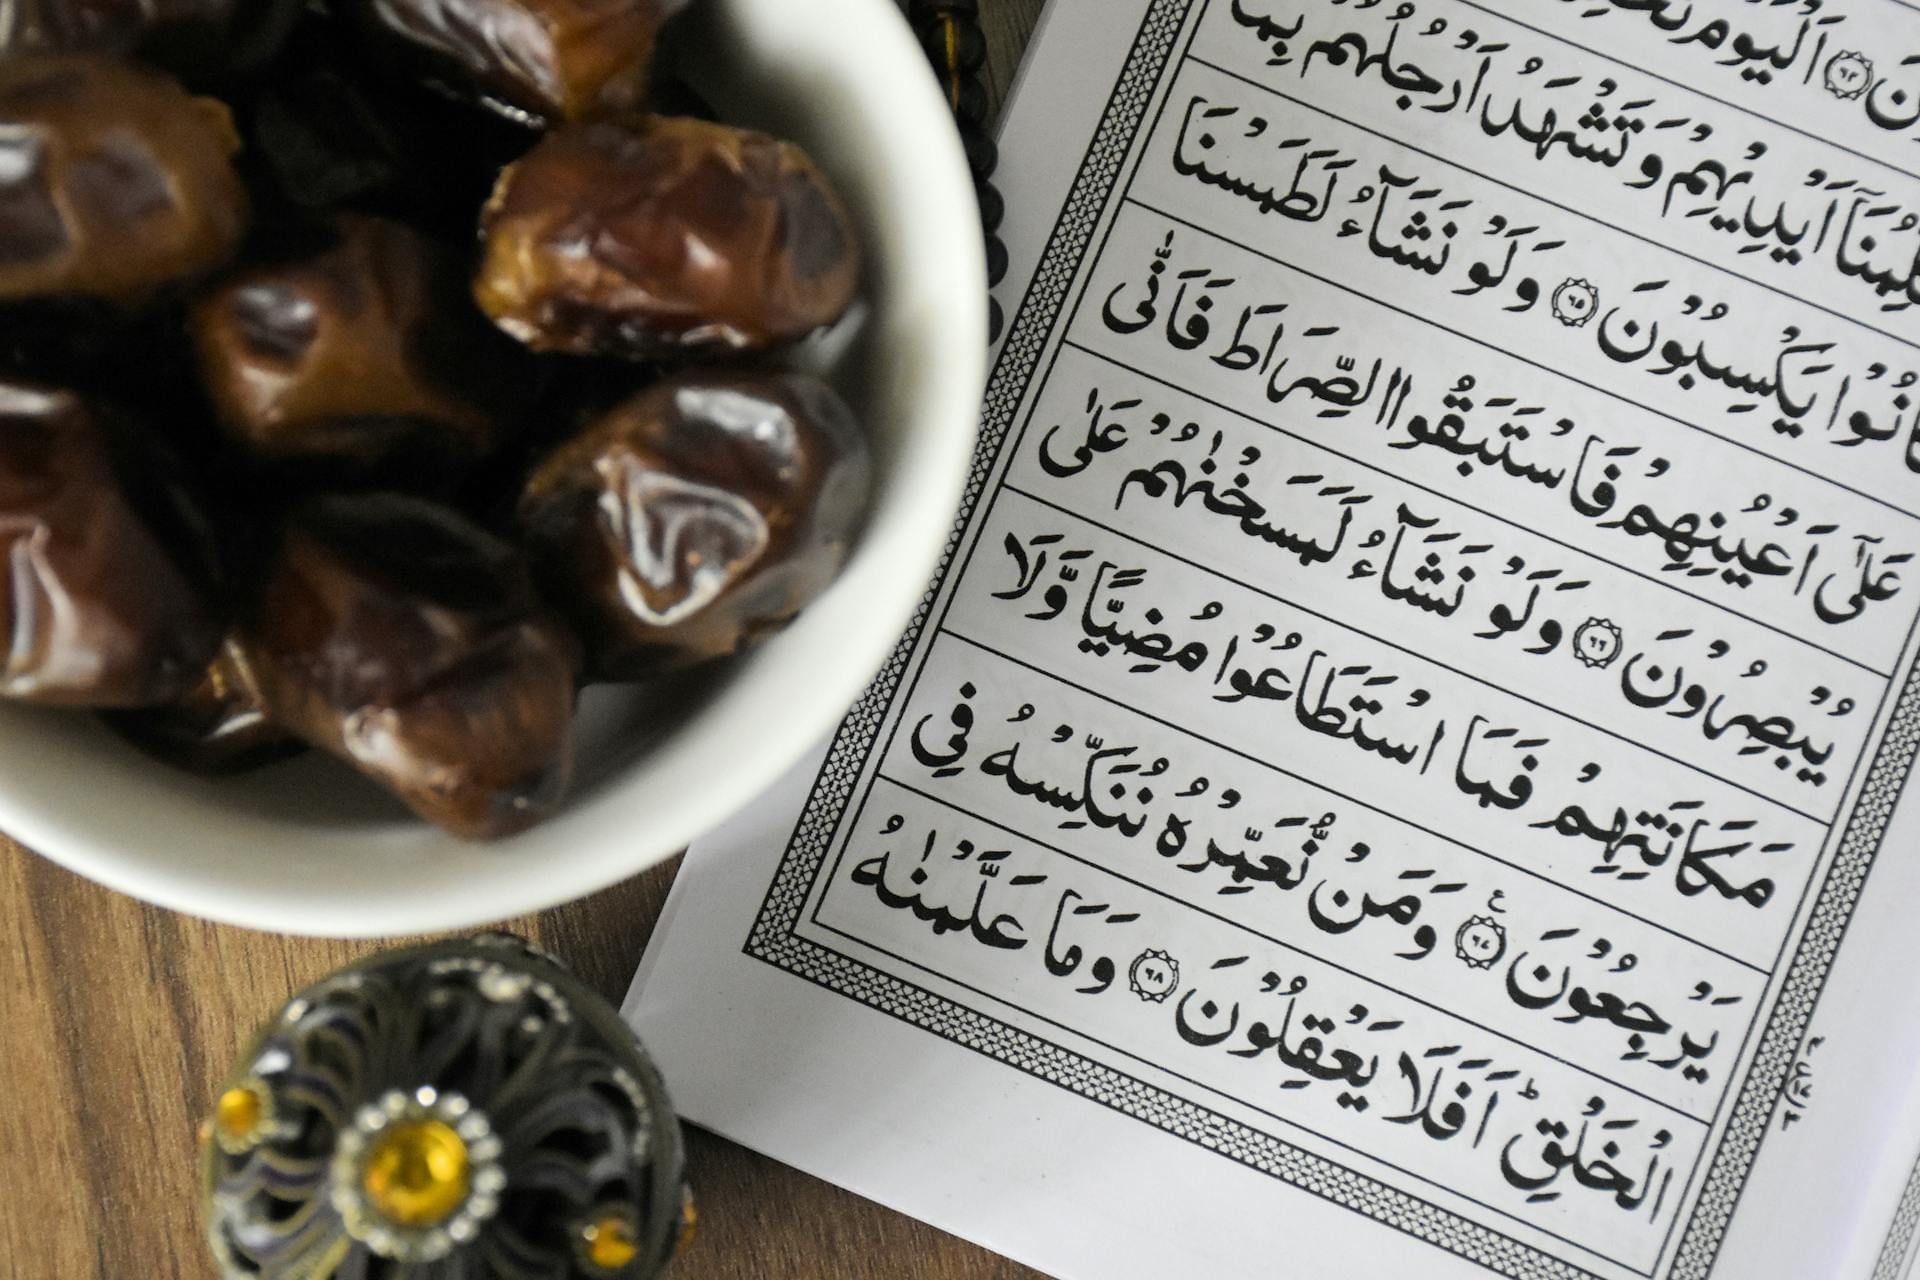 اَلْيَوْمَ
اَيْدِيْهِمْ وَتَشْهَدُ اَرْجُلُهُمْ بِمَا
كَانُوْا يَكْسِبُوْنَ ٦٥ وَلَوْ نَشَآءُ لَطَمَسْنَا
عَلٰٓى اَعْيُنِهِمْ فَاسْتَبَقُوا الصِّرَاطَ فَاَنّٰى
يُبْصِرُوْنَ ٦٦ وَلَوْ نَشَآءُ لَمَسَخْنٰهُمْ عَلٰى
مَكَانَتِهِمْ فَمَا اسْتَطَاعُوْا مُضِيًّا وَّلَا
يَرْجِعُوْنَ ٦٧ وَمَنْ نُّعَمِّرْهُ نُنَكِّسْهُ فِى
الْخَلْقِؕ اَفَلَا يَعْقِلُوْنَ ٦٨ وَمَا عَلَّمْنٰهُ